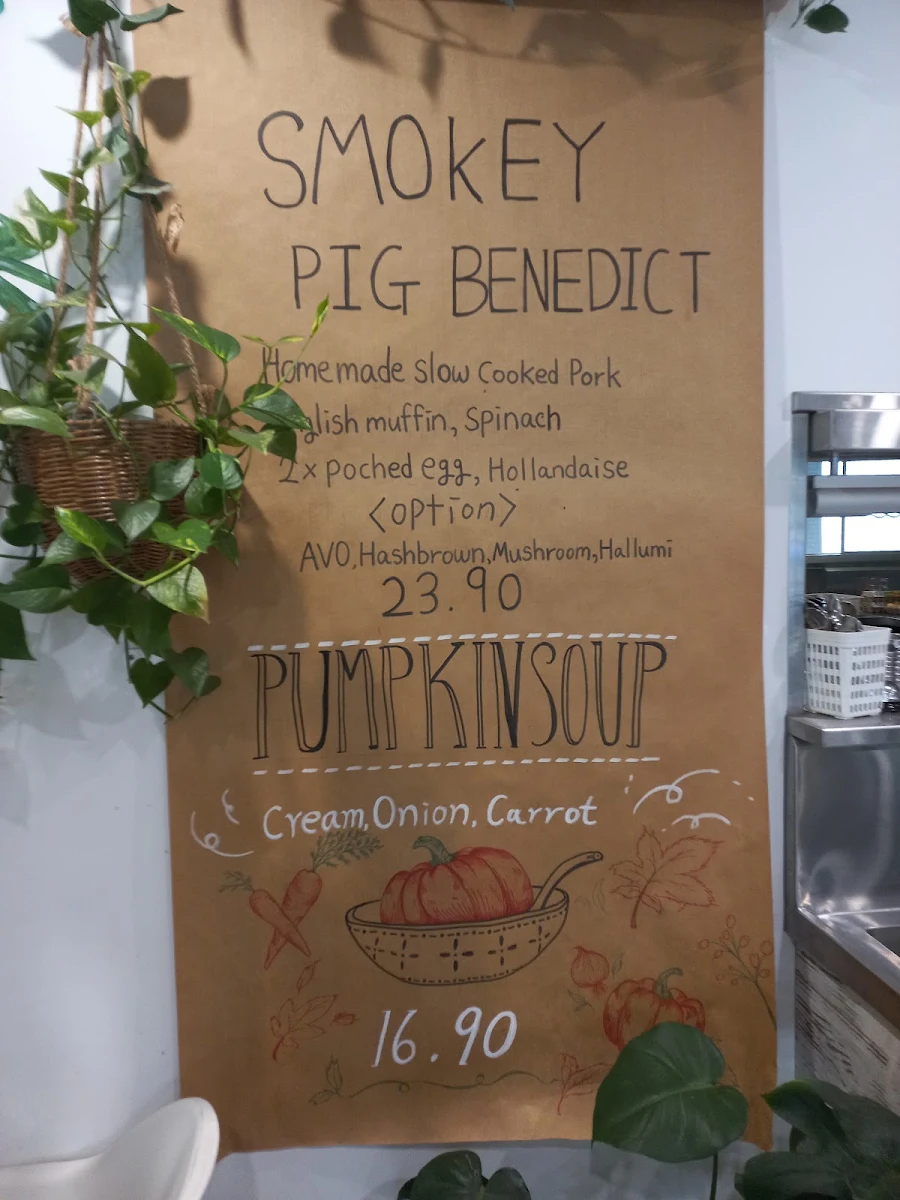 SMOKEY
PIG BENEDICT
Homemade slow Cooked Pork
glish muffin, Spinach
2x poched egg, Hollandaise
<option>
AVO, Hashbrown, Mushroom, Hallumi
23.90
PUMPKINSOUP
Cream, Onion, Carrot
16.90